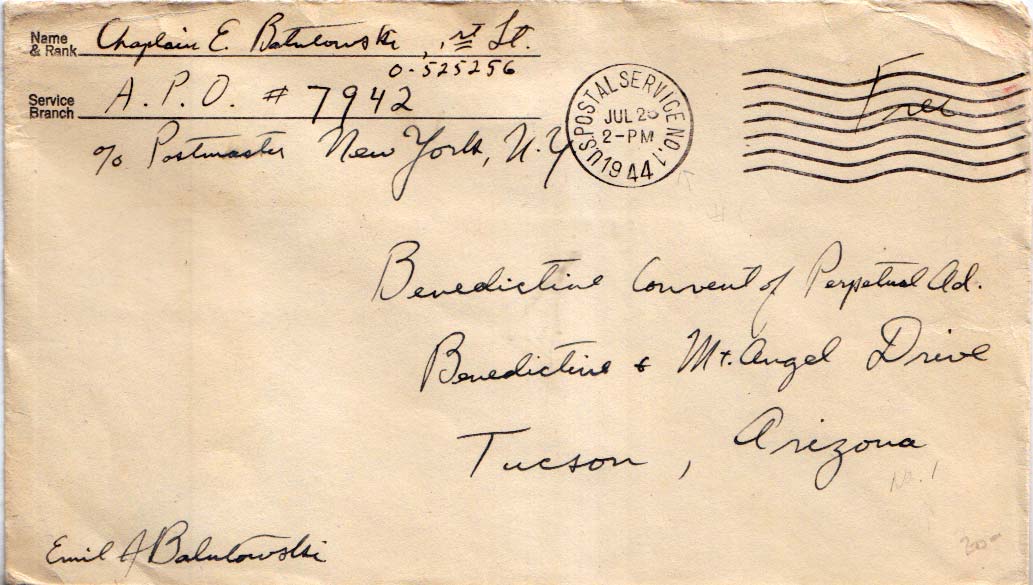 Name & Rank Chaplain E. Balutowski, 1st Lt.
O-525256
Service Branch A. P. O. # 7942
c/o Postmaster New York, N.Y
U.S. POSTAL SERVICE NO. 1
JUL 25
2-PM
1944
Free
Benedictine Convent of Perpetual Ad.
Benedictine & Mt. Angel Drive
Tucson, Arizona
No. 1
Emil A Balutowski